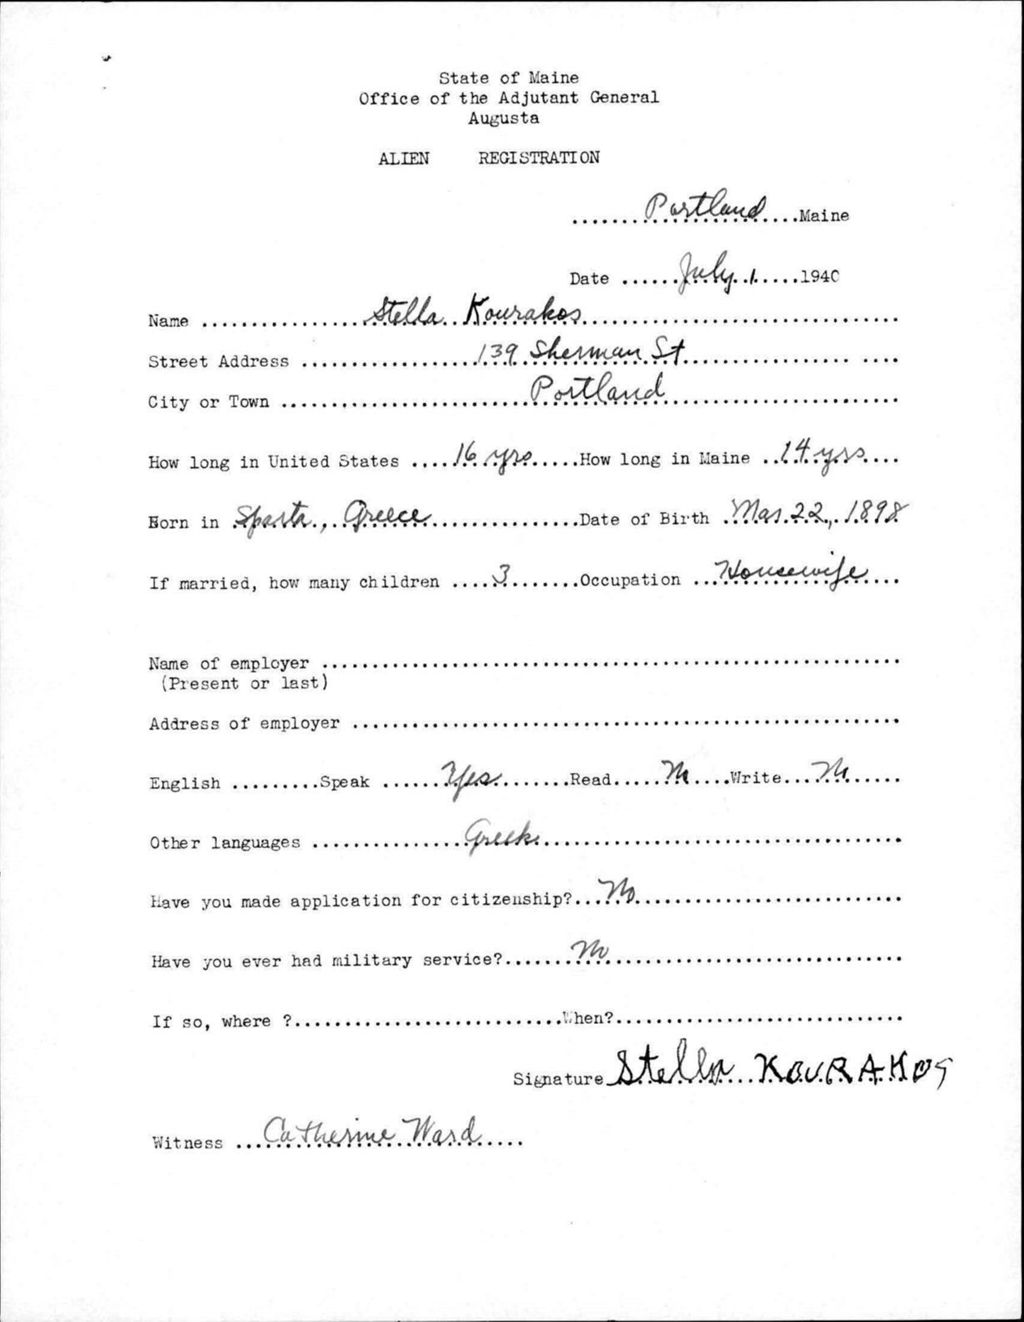 State of Maine
Office of the Adjutant General
Augusta
ALIEN REGISTRATION
.......Portland....Maine
Date ......July.1.....1940
Name ................Stella..Kourakos................................
Street Address .................139 Sherman St.................. ....
City or Town .........................Portland........................
How long in United States ....16 yrs.....How long in Maine ..14 yrs....
Born in .Sparta., .Greece................Date of Birth .Mar.22., 1898
If married, how many children ....3.......Occupation ...Housewife....
Name of employer ..........................................................
(Present or last)
Address of employer .......................................................
English .........Speak ......Yes.......Read.....No....Write...No......
Other languages ................Greek.....................................
Have you made application for citizenship?...No...........................
Have you ever had military service?.......No..............................
If so, where ?...........................When?.............................
Signature Stella...KOURAKOS
Witness ...Catherine.Ward.....